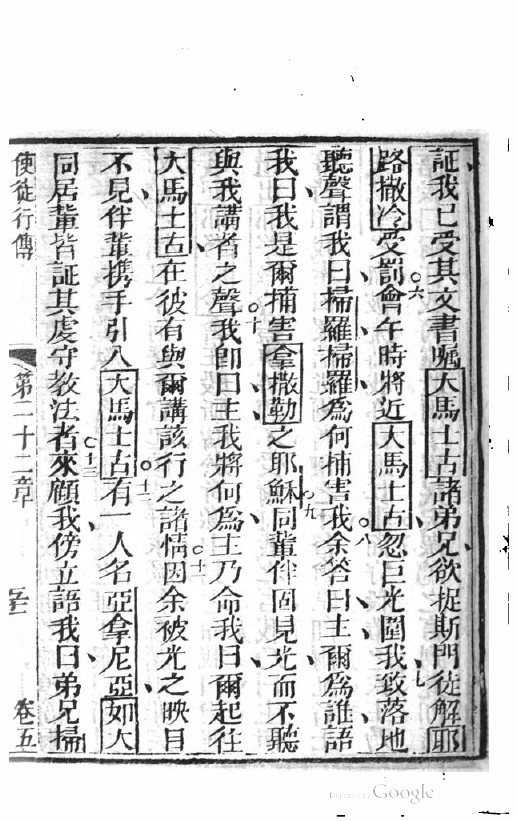 証我已受其文書囑大馬士古諸弟兄欲捉斯門徒解耶
路撒冷受罰六會午時將近大馬士古忽巨光圍我七致落地
聽聲謂我曰掃羅掃羅為何捕害我八余答曰主爾為誰語
我曰我是爾捕害拿撒勒之耶穌九同輩伴固見光而不聽
與我講者之聲十我即曰主我將何為主乃命我曰爾起往
大馬士古在彼有與爾講該行之諸情十一因余被光之映目
不見伴輩携手引入大馬士古十二有一人名亞拿尼亞如人
同居輩皆証其虔守教法者十三來顧我傍立語我曰弟兄掃
使徒行傳 第二十二章 卷五
Digitized by Google